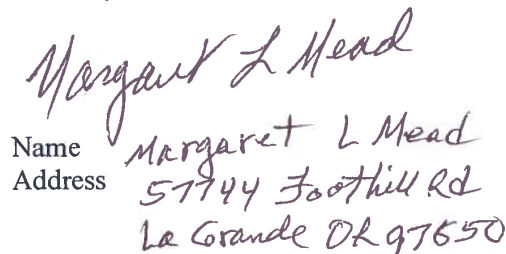 Margaret L Mead
Name Margaret L Mead
Address 57744 Foothill Rd
La Grande OR 97850